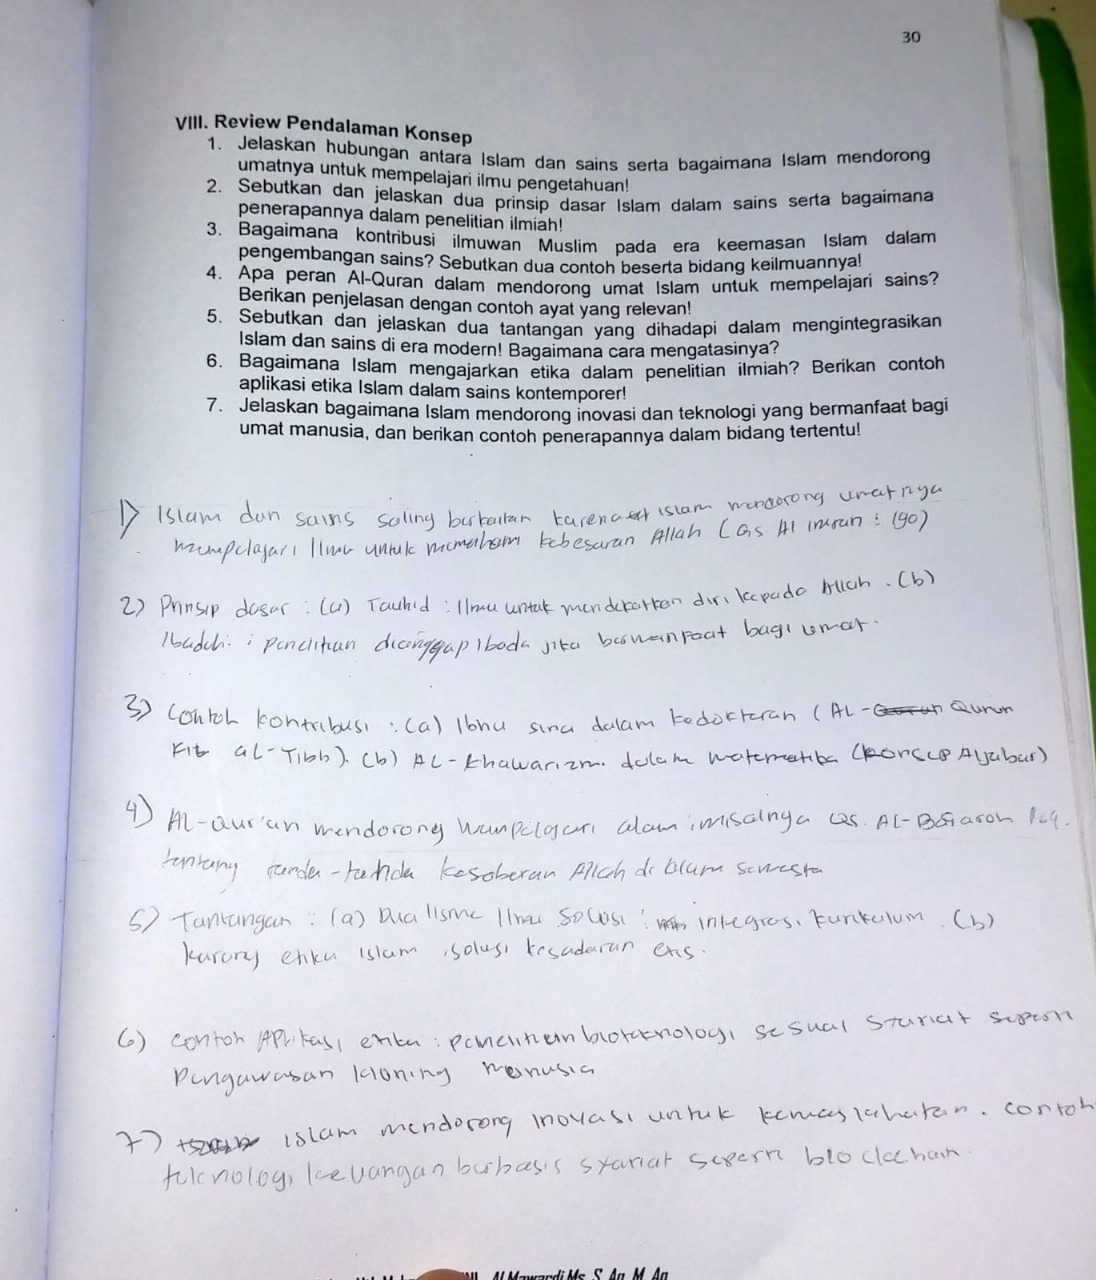 30
VIII. Review Pendalaman Konsep
1. Jelaskan hubungan antara Islam dan sains serta bagaimana Islam mendorong
umatnya untuk mempelajari ilmu pengetahuan!
2. Sebutkan dan jelaskan dua prinsip dasar Islam dalam sains serta bagaimana
penerapannya dalam penelitian ilmiah!
3. Bagaimana kontribusi ilmuwan Muslim pada era keemasan Islam dalam
pengembangan sains? Sebutkan dua contoh beserta bidang keilmuannya!
4. Apa peran Al-Quran dalam mendorong umat Islam untuk mempelajari sains?
Berikan penjelasan dengan contoh ayat yang relevan!
5. Sebutkan dan jelaskan dua tantangan yang dihadapi dalam mengintegrasikan
Islam dan sains di era modern! Bagaimana cara mengatasinya?
6. Bagaimana Islam mengajarkan etika dalam penelitian ilmiah? Berikan contoh
aplikasi etika Islam dalam sains kontemporer!
7. Jelaskan bagaimana Islam mendorong inovasi dan teknologi yang bermanfaat bagi
umat manusia, dan berikan contoh penerapannya dalam bidang tertentu!
1) Islam dan sains saling berkaitan karena Islam mendorong umatnya
mempelajari Ilmu untuk memahami kebesaran Allah (Qs Al imran : 190)
2) Prinsip dasar : (a) Tauhid : Ilmu untuk mendekatkan diri kepada Allah . (b)
Ibadah : penelitian dianggap iboda jika bermanfaat bagi umat.
3) Contoh kontribusi : (a) Ibnu sina dalam kedokteran (AL- Qunun
Fit al-Tibb). (b) AL-Khawarizmi dalam matematika (Konsep Aljabar)
4) AL-Qur'an mendorong alam, misalnya Qs. AL-Baqaroh 164.
tentang tanda-tanda Allah di alam semesta
5) Tantangan : (a) Dualisme Ilmu Solusi : integrasi kurikulum . (b)
kurang etika Islam , solusi kesadaran etis.
6) Contoh Aplikasi etika : penelitian bioteknologi sesuai syariat seperti
Pengawasan kloning manusia
7) islam mendorong inovasi untuk kemaslahatan. contoh
teknologi keuangan berbasis syariat seperti blockchain.
Al Mawardi Ms, S.Ag, M.Ag